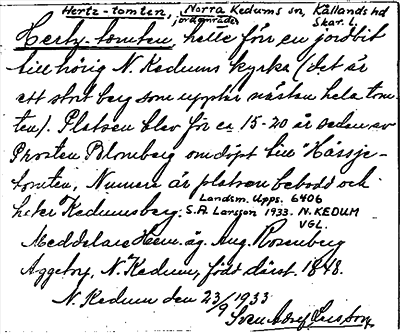 Hertz-tomten, Norra Kedums sn, Kållands hd
jordområde, Skar. l.
Hertz-tomten, hette förr en jordbit
till hörig N. Kedums kyrka (det är
ett stort berg som upptar nästan hela tom-
ten). Platsen blev för ca 15-20 år sedan av
Prosten Blomberg omdöpt till "Hässje-
tomten, Numera är platsen bebodd och
heter Kedumsberg. Landsm. Upps. 6406
S. A. Larsson 1933. N. KEDUM
VGL.
Meddelare Hem. äg. Aug. Rosenberg
Aggetorp, N. Kedum, född därst. 1848.
N. Kedum den 23/9 1933